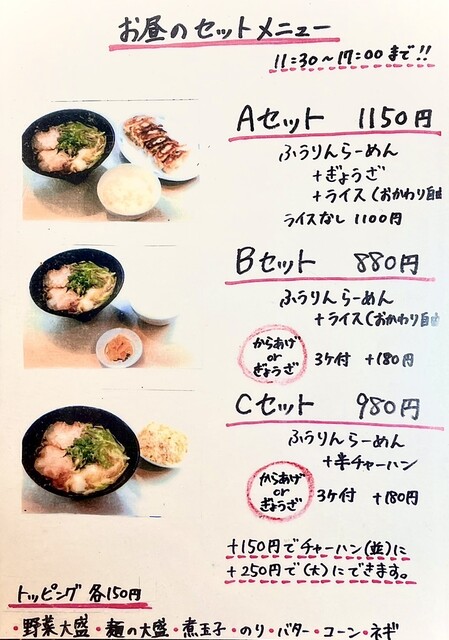 お昼のセットメニュー
11:30～17:00まで!!
Aセット 1150円
ふうりんらーめん
+ぎょうざ
+ライス(おかわり自由
ライスなし 1100円
Bセット 880円
ふうりんらーめん
+ライス(おかわり自由
からあげ
or
ぎょうざ
3ケ付 +180円
Cセット 980円
ふうりんらーめん
+半チャーハン
からあげ
or
ぎょうざ
3ケ付 +180円
+150円でチャーハン(並)に
+250円で(大)にできます。
トッピング 各150円
・野菜大盛・麺の大盛・煮玉子・のり・バター・コーン・ネギ